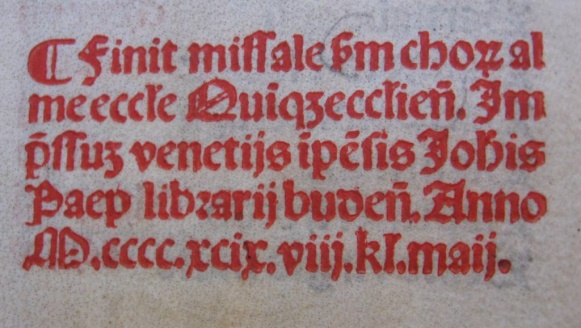 ⸿ Finit miſſale ẜm choꝝ al
me eccłe Quiqꝫeccłień. Im
p̄ſſuꝫ venetijs ipēſis Joħis
Paep libꝛarij budeń. Anno
M.cccc.xcix.viij.kł.maij.